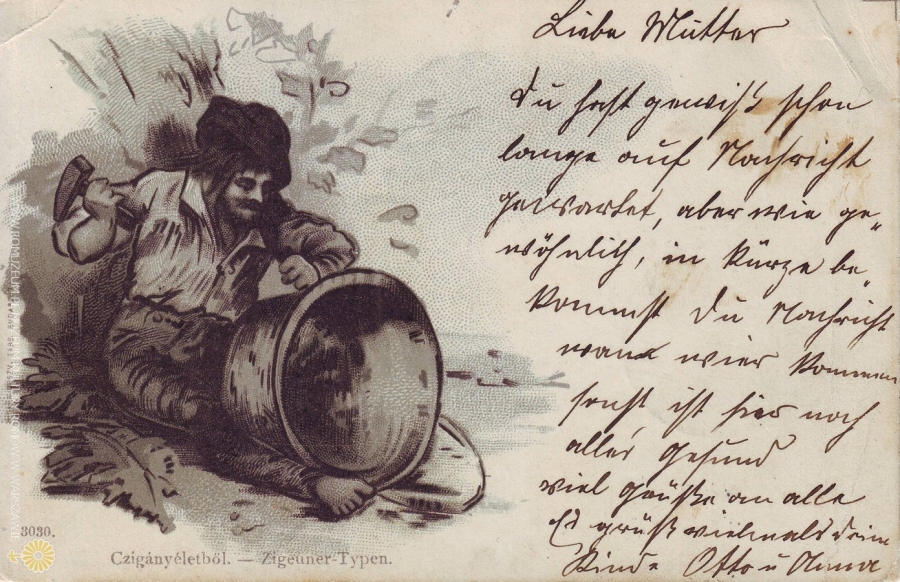 Liebe Mutter
Du hast gewiß schon
lange auf Nachricht
gewartet, aber wie ge„
wöhnlich, in kürze be„
kommst Du Nachricht
wann wier kommen
sonst ist hier noch
alles gesund
viel grüße an alle
Es grüßt vielmals dein
Kinde Otto u Anna
3030.
Czigányéletböl. — Zigeuner-Typen.